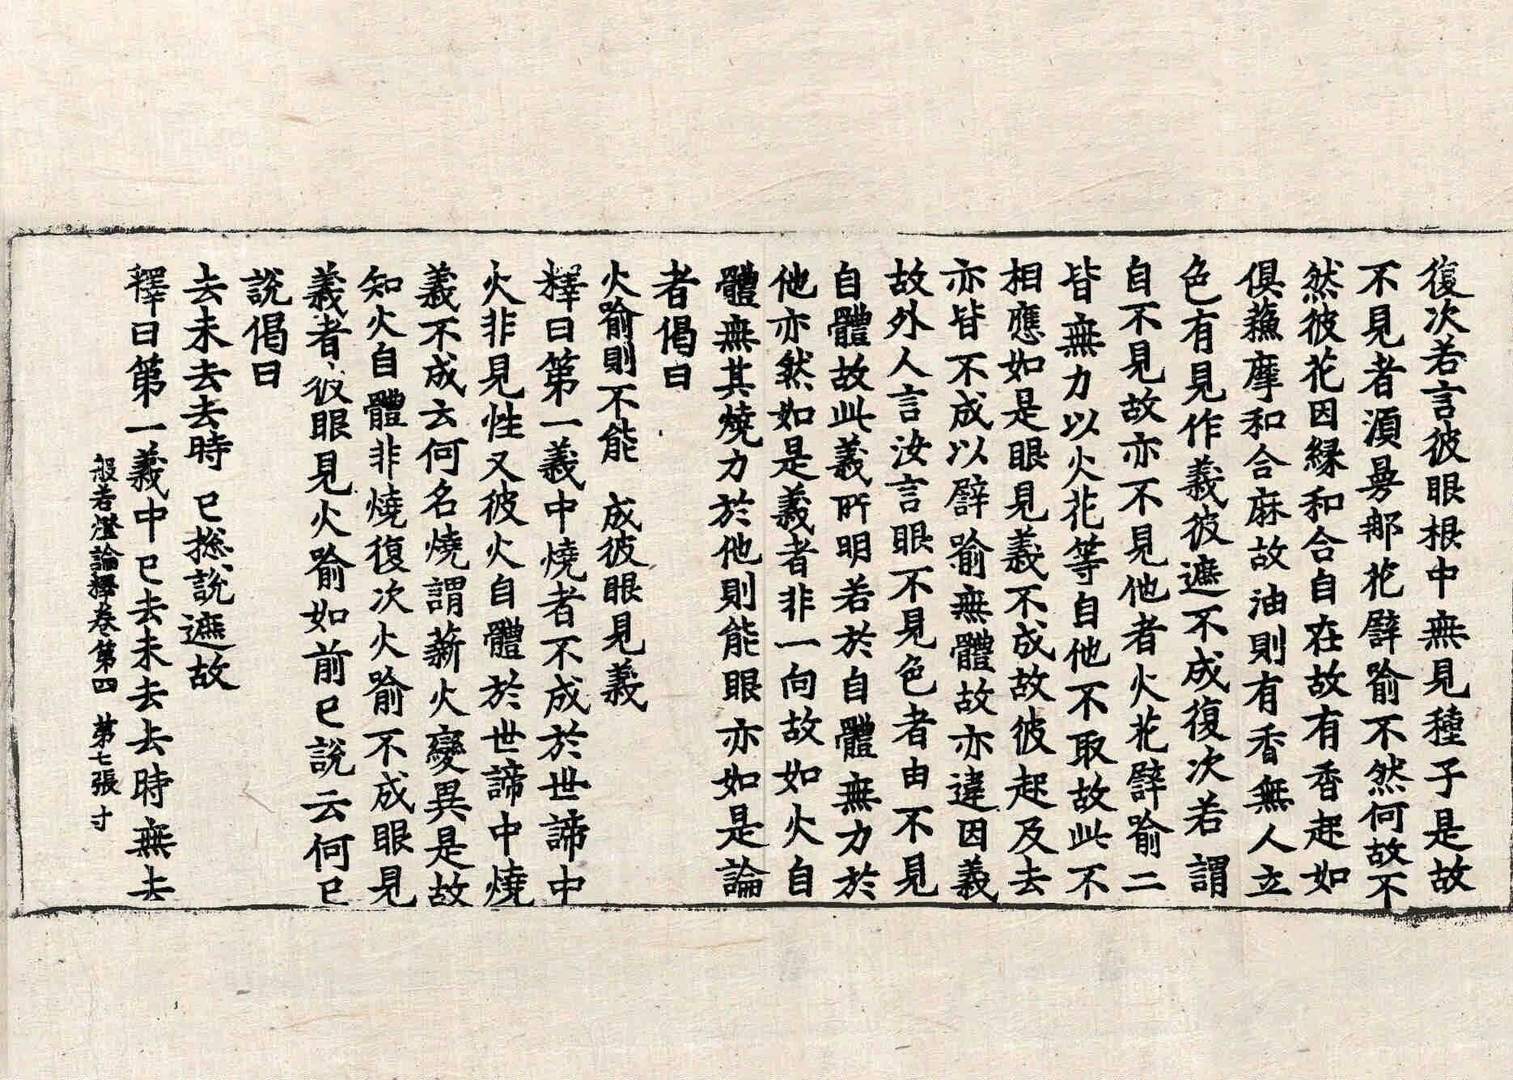 復次若言彼眼根中無見種子是故
不見者湏曼那花譬喻不然何故不
然彼花因緣和合自在故有香起如
俱蘓摩和合麻故油則有香無人立
色有見作義彼遮不成復次若謂
自不見故亦不見他者火花譬喻二
皆無力以火花等自他不取故此不
相應如是眼見義不成故彼起及去
亦皆不成以譬喻無體故亦違因義
故外人言汝言眼不見色者由不見
自體故此義所明若於自體無力於
他亦然如是義者非一向故如火自
體無其燒力於他則能眼亦如是論
者偈曰
火喻則不能 成彼眼見義
釋曰第一義中燒者不成於世諦中
火非見性又彼火自體於世諦中燒
義不成云何名燒謂薪火變異是故
知火自體非燒復次火喻不成眼見
義者彼眼見火喻如前已說云何已
說偈曰
去未去去時 已捴說遮故
釋曰第一義中已去未去去時無去
般若燈論釋卷第四 第七張 寸